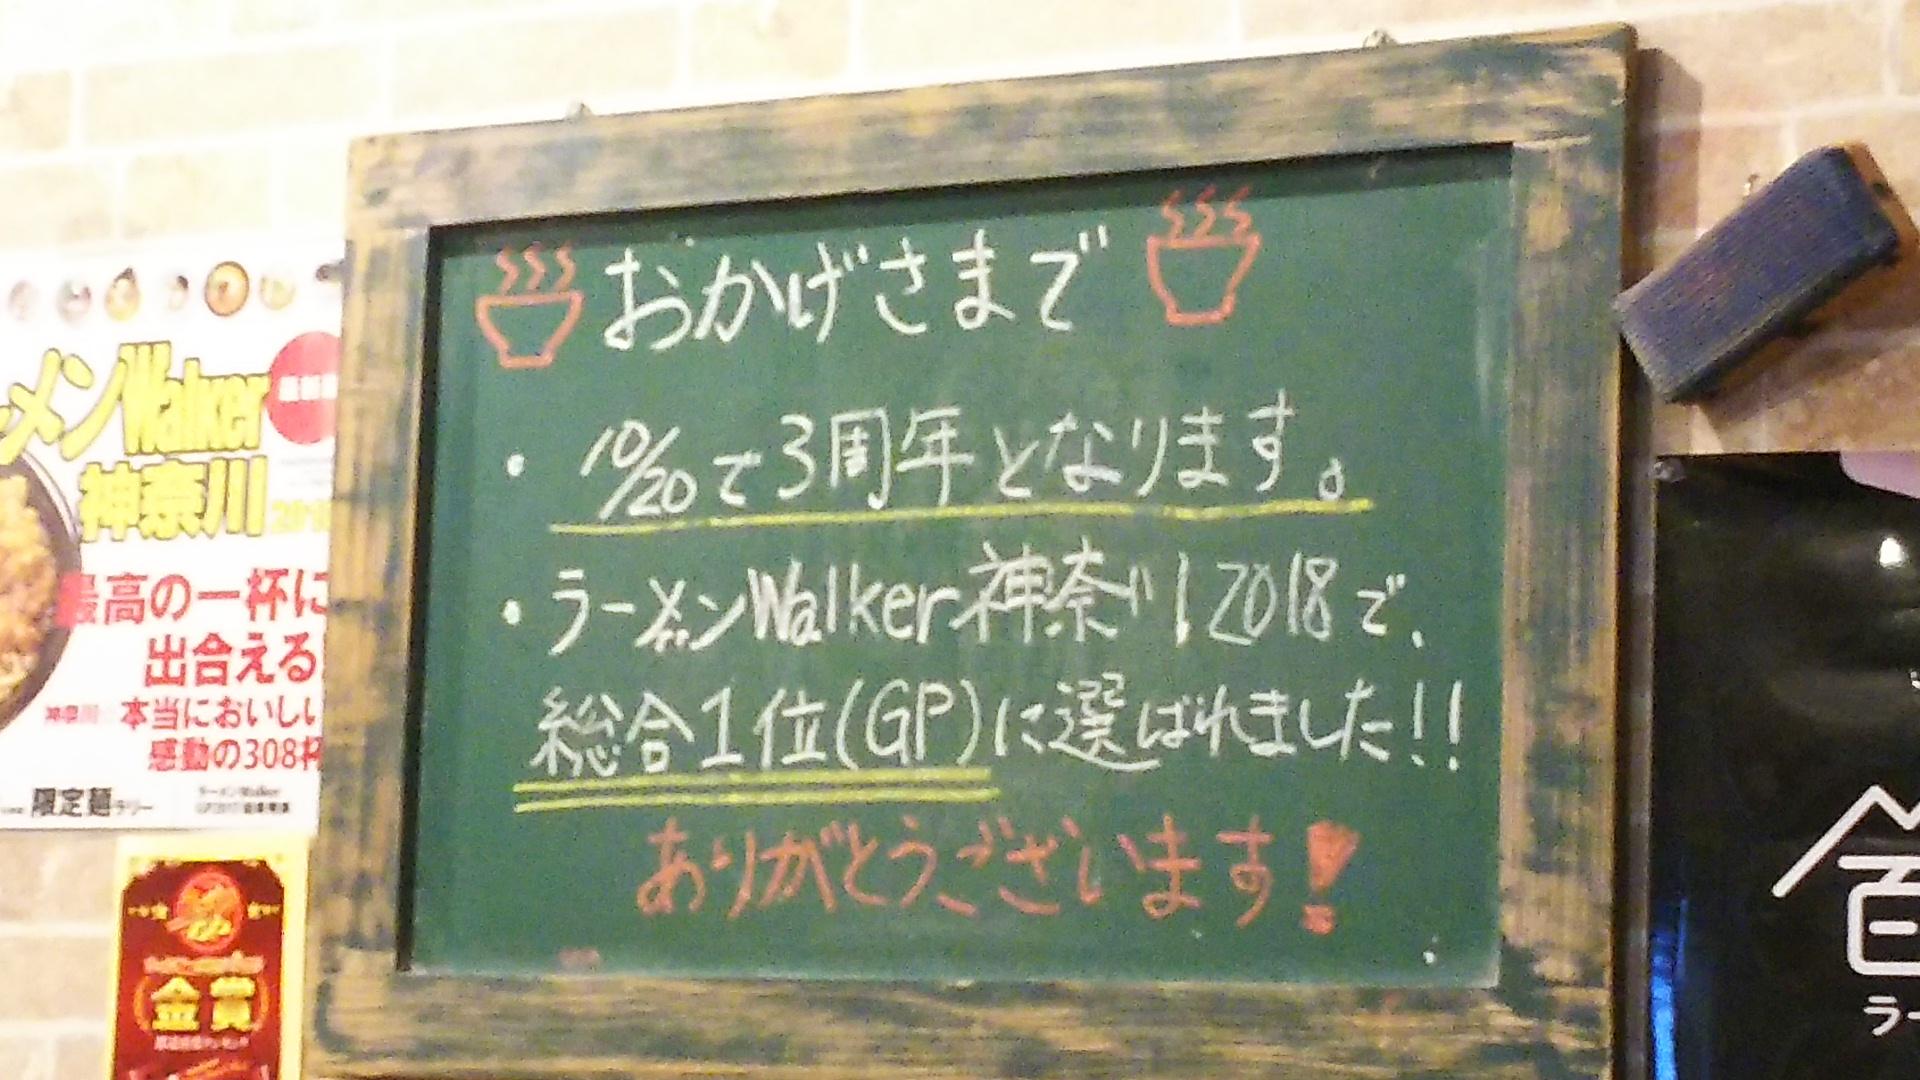 おかげさまで
・10/20で3周年となります。
・ラーメンWalker神奈川2018で、
総合1位(GP)に選ばれました!!
ありがとうございます!
メンWalker
神奈川
最高の一杯に
出合える
本当においしい
感動の308杯
限定麺ラリー
金賞
ラー